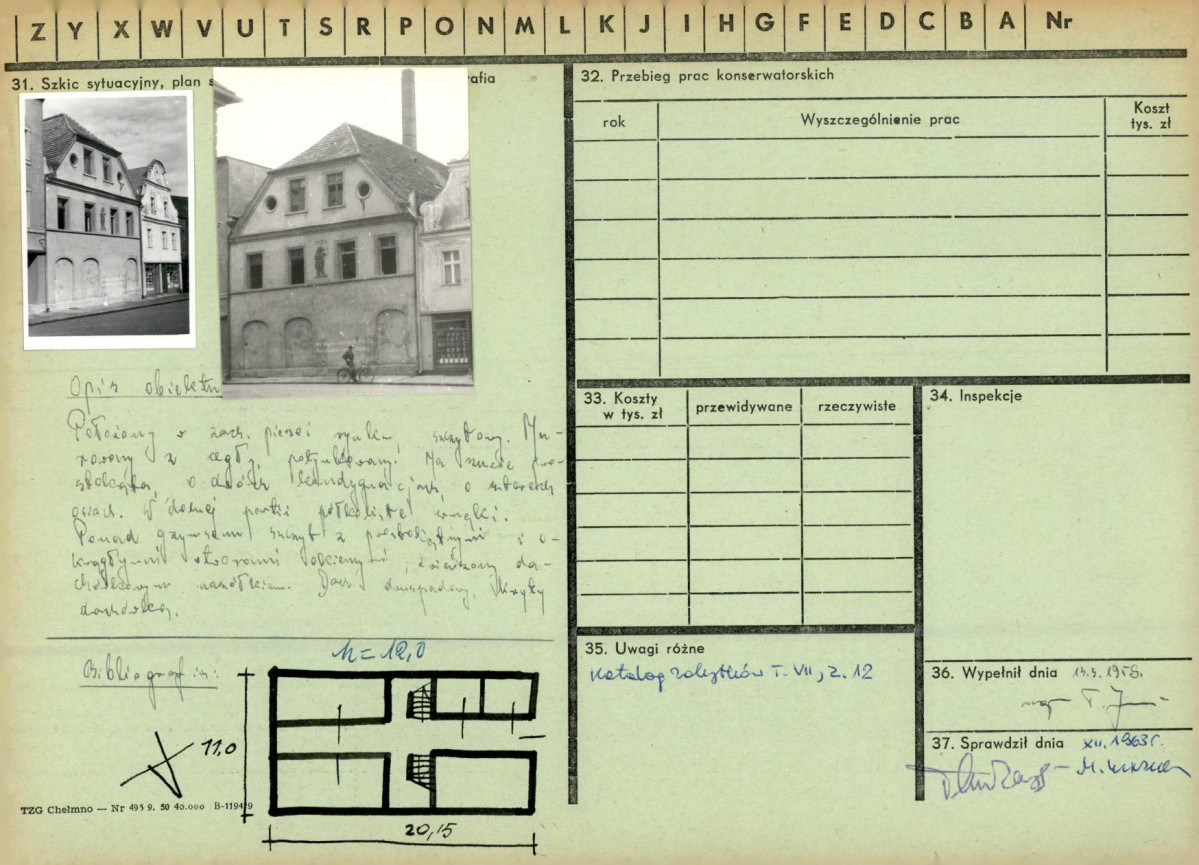 Z Y X W V U T S R P O N M L K J I H G F E D C B A Nr
31. Szkic sytuacyjny, plan s
afia
Opis obiektu
Położony w zach. pierzei rynku, szczytowy. Mu-
rowany z cegły, potynkowany. Na rzucie pro-
stokąta, o dwóch kondygnacjach, o czterech
osiach. W dolnej partii półkoliste wnęki.
Ponad gzymsem szczyt z prostokątnymi i o-
krągłymi otworami okiennymi, zwieńczony da-
chówkowym naczółkiem. Dach dwuspadowy, kryty
dachówką.
Bibliografia:
h = 12,0
11,0
20,15
TZG Chełmno — Nr 495 9. 50 40.000 B-119429
32. Przebieg prac konserwatorskich
rok
Wyszczególnienie prac
Koszt
tys. zł
33. Koszty
w tys. zł
przewidywane
rzeczywiste
34. Inspekcje
35. Uwagi różne
Katalog zabytków T. VII, z. 12
36. Wypełnił dnia 14.3. 1958.
mgr T.
37. Sprawdził dnia XII. 1963 r.